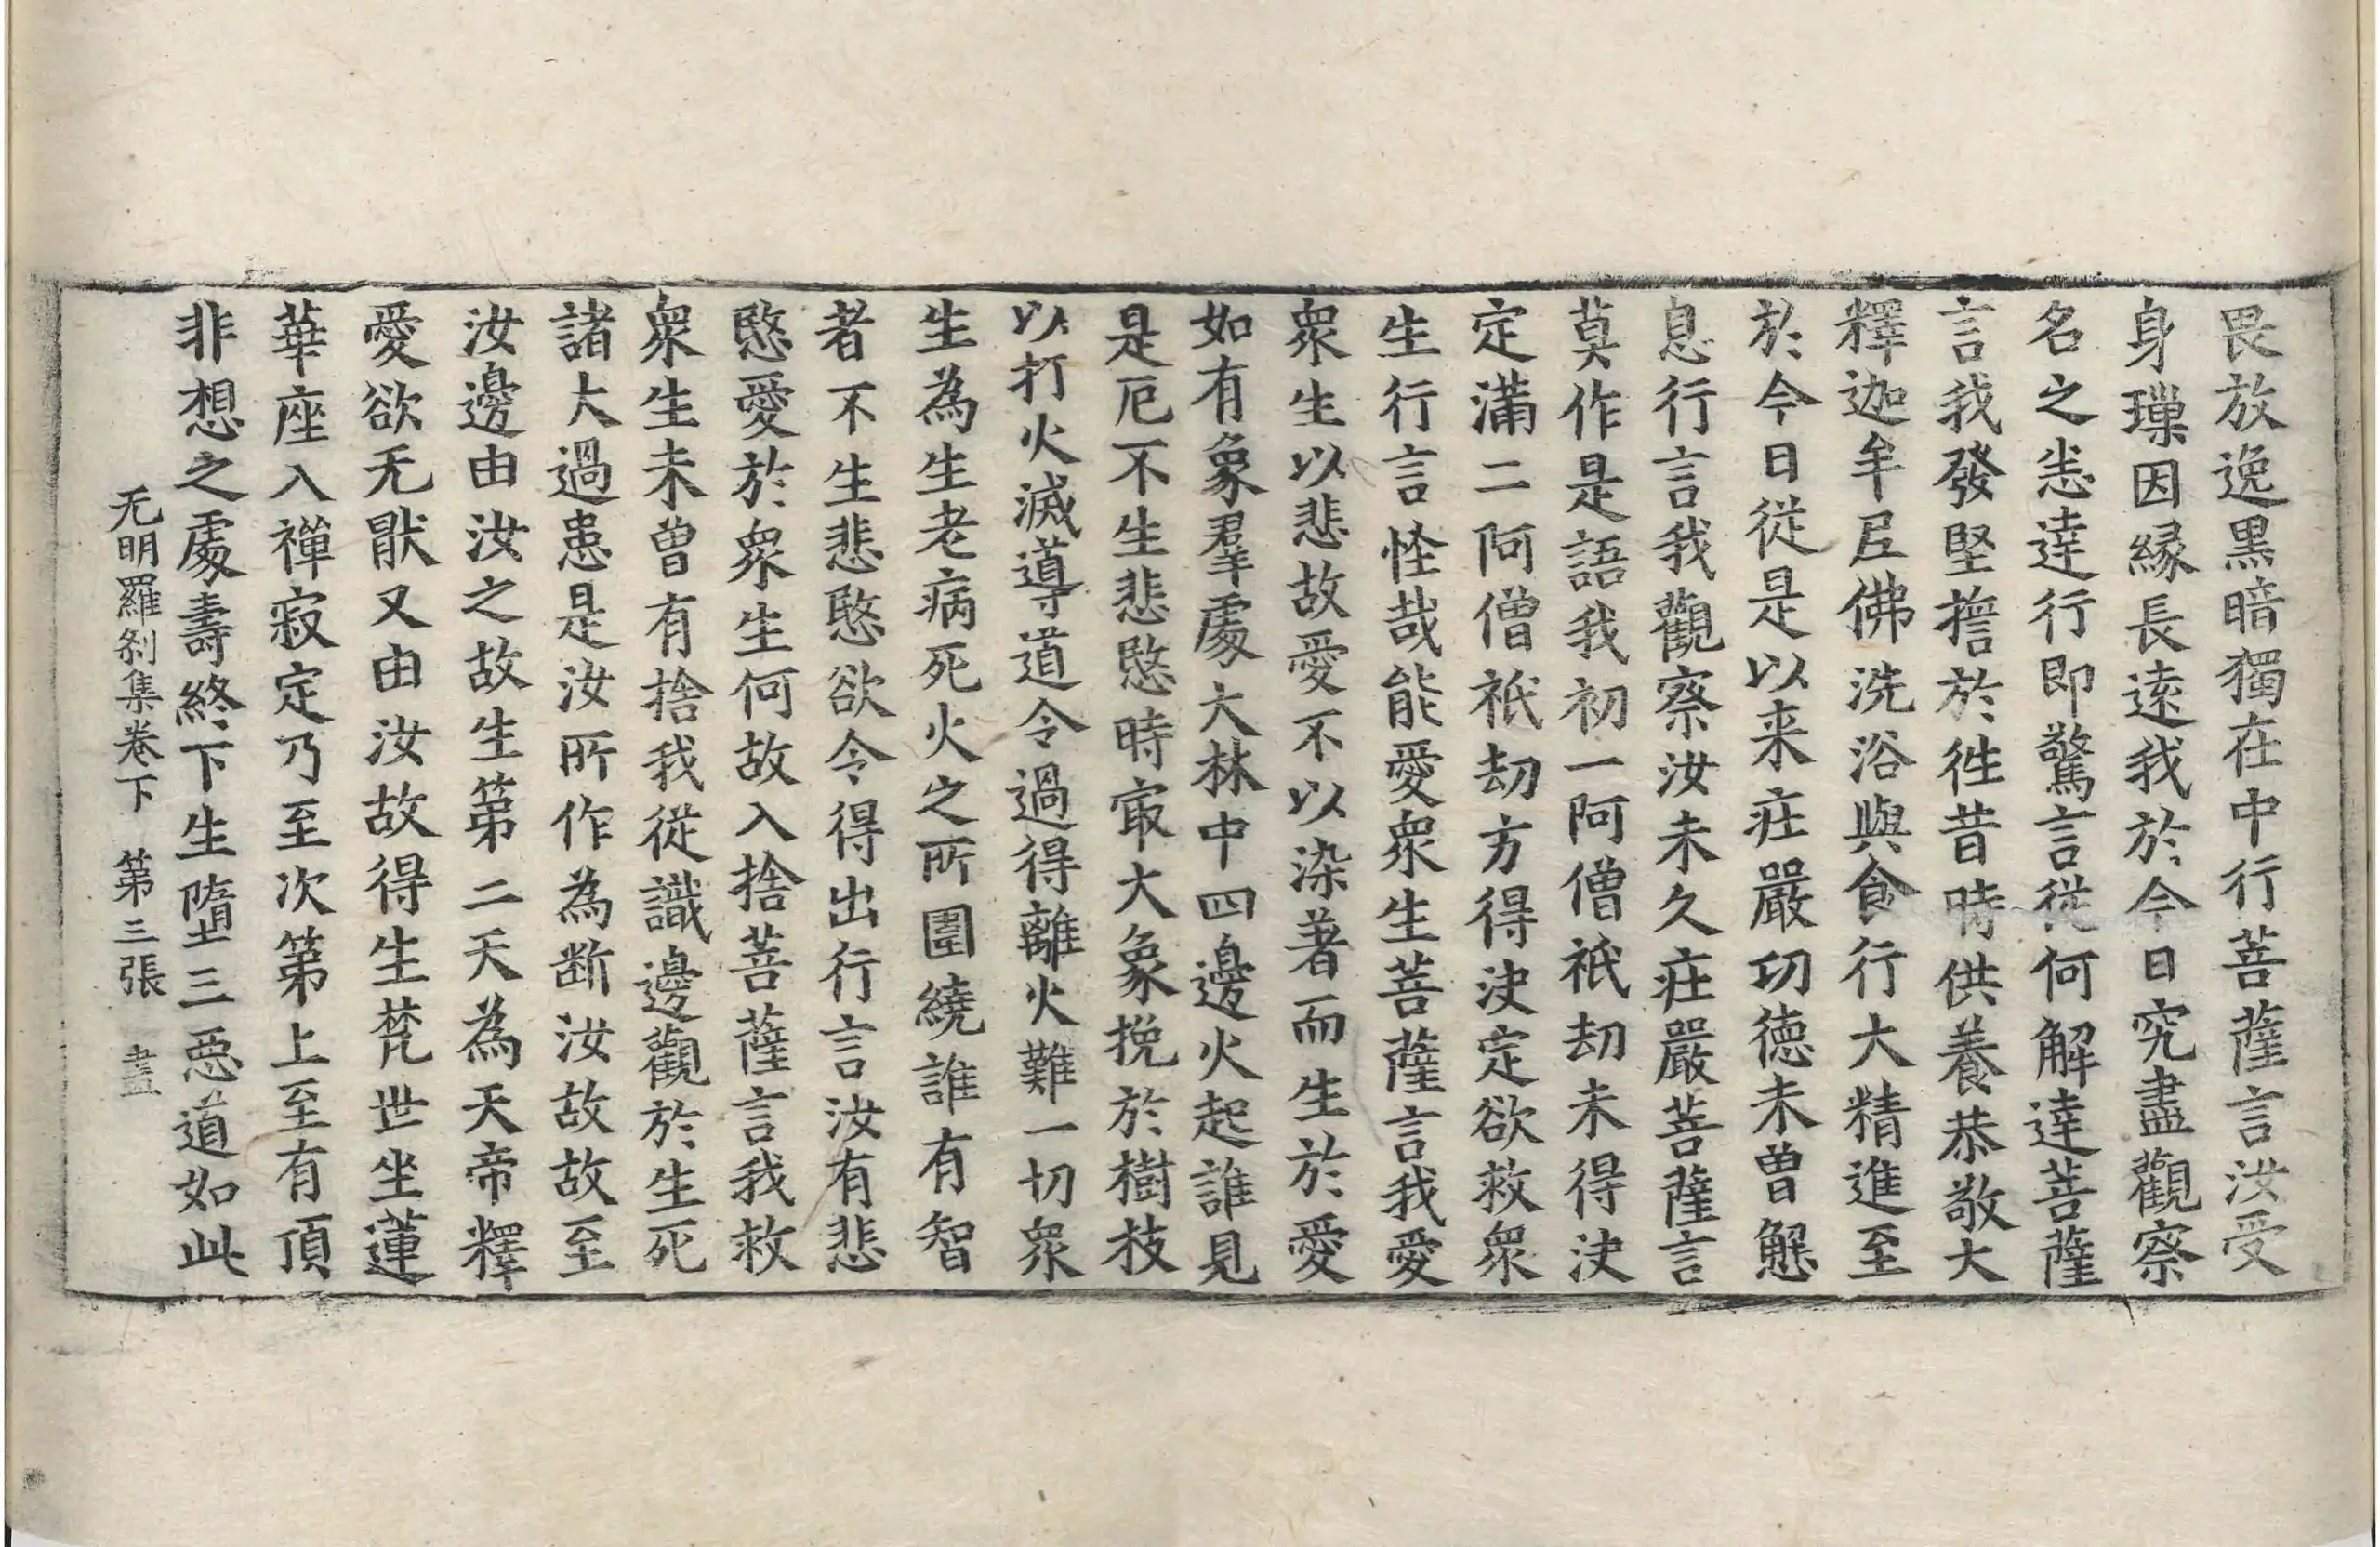 畏放逸黒暗獨在中行菩薩言汝受
身瓅因縁長逺我於今日究盡觀察
名之恙逹行即驚言從何解逹菩薩
言我發堅擔於徃昔時供養恭敬大
釋迦牟𡰱佛洗浴與食行大精進至
於今日從是以来荘嚴功德未曽懈
息行言我觀察汝未久荘嚴菩薩言
莫作是語我初一阿僧祇劫未得决
定滿二阿僧祇劫方得决定欲救衆
生行言怪哉能愛衆生菩薩言我愛
衆生以悲故愛不以染著而生於愛
如有象羣處大林中四邊火起誰見
是厄不生悲愍時㝡大象挽於樹枝
以打火滅導道令過得離火難一切衆
生為生老病死火之所圍繞誰有智
者不生悲愍欲令得出行言汝有悲
愍愛於衆生何故入捨菩薩言我救
衆生未曽有捨我從識邊觀於生死
諸大過患是汝所作為断汝故故至
汝邊由汝之故生第二天為天帝釋
愛欲无猒又由汝故得生梵世坐蓮
華座入禪寂定乃至次第上至有頂
非想之處壽終下生墮三惡道如此
无明羅刹集卷下 第三張 𦘕